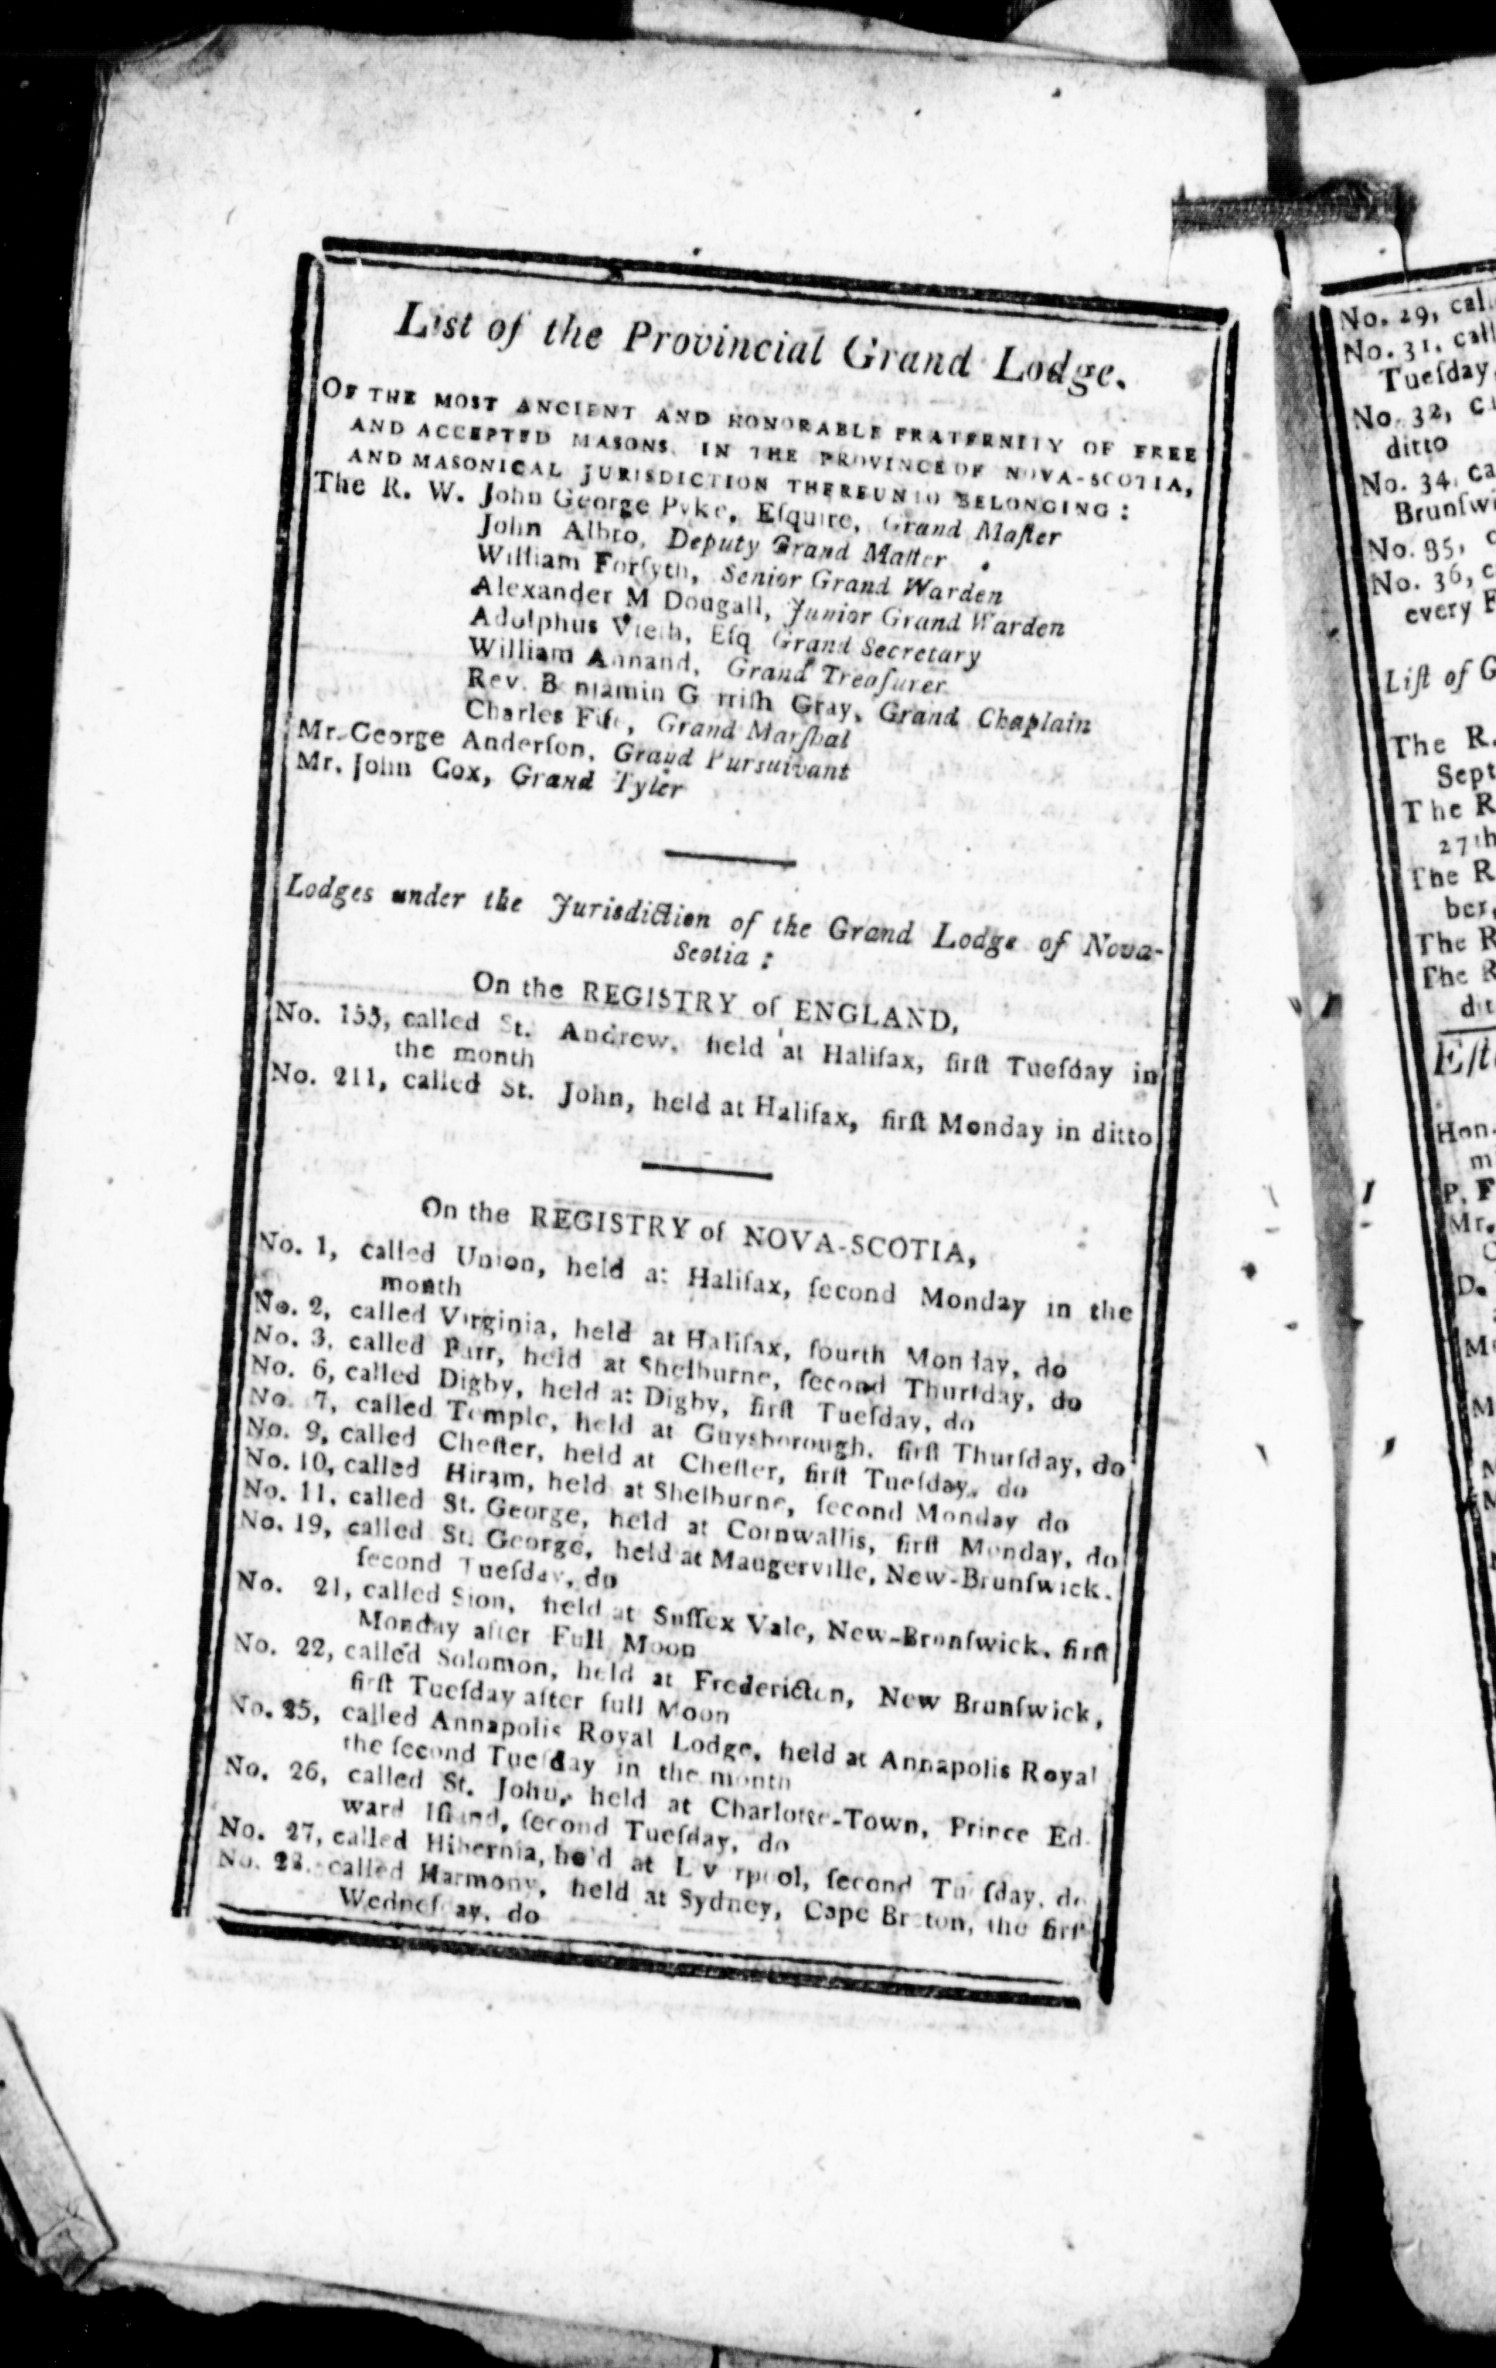 List of the Provincial Grand Lodge.
OF THE MOST ANCIENT AND HONORABLE FRATERNITY OF FREE
AND ACCEPTED MASONS, IN THE PROVINCE OF NOVA-SCOTIA,
AND MASONICAL JURISDICTION THEREUNTO BELONGING:
The R. W. John George Pyke, Eſquire, Grand Maſter
John Albro, Deputy Grand Maſter
William Forſyth, Senior Grand Warden
Alexander M'Dougall, Junior Grand Warden
Adolphus Vieth, Eſq Grand Secretary
William Annand, Grand Treaſurer
Rev. Benjamin Gerriſh Gray, Grand Chaplain
Charles Grand Marſhal
Mr. George Anderſon, Grand Purſuivant
Mr. John Cox, Grand Tyler
Lodges under the Jurisdiction of the Grand Lodge of Nova-
Scotia:
On the REGISTRY of ENGLAND,
No. 155, called St. Andrew, held at Halifax, firſt Tueſday in
the month
No. 211, called St. John, held at Halifax, firſt Monday in ditto
On the REGISTRY of NOVA-SCOTIA,
No. 1, called Union, held at Halifax, ſecond Monday in the
month
No. 2, called Virginia, held at Halifax, fourth Monday, do
No. 3, called Parr, held at Shelburne, ſecond Thurſday, do
No. 6, called Digby, held at Digby, firſt Tueſday, do
No. 7, called Temple, held at Guysborough, firſt Thurſday, do
No. 9, called Cheſter, held at Cheſter, firſt Tueſday, do
No. 10, called Hiram, held at Shelburne, ſecond Monday do
No. 11, called St. George, held at Cornwallis, firſt Monday, do
No. 19, called St. George, held at Maugerville, New-Brunſwick.
ſecond Tueſday, do
No. 21, called Sion, held at Suſſex Vale, New-Brunſwick, firſt
Monday after Full Moon
No. 22, called Solomon, held at Fredericton, New Brunſwick,
firſt Tueſday after full Moon
No. 25, called Annapolis Royal Lodge, held at Annapolis Royal
the ſecond Tueſday in the month
No. 26, called St. John, held at Charlotte-Town, Prince Ed-
ward Iſland, ſecond Tueſday, do
No. 27, called Hibernia, held at Liverpool, ſecond Tueſday, do
No. 28, called Harmony, held at Sydney, Cape Breton, the firſt
Wedneſday, do
No. 29, cal
No. 31, call
Tueſday,
No. 32, c
ditto
No. 34, ca
Brunſw
No. 35, c
No. 36, c
every F
Liſt of G
The R.
Sept
The R
27th
The R
ber,
The R
The R
dit
Hon.
m
P. F
Mr.
D.